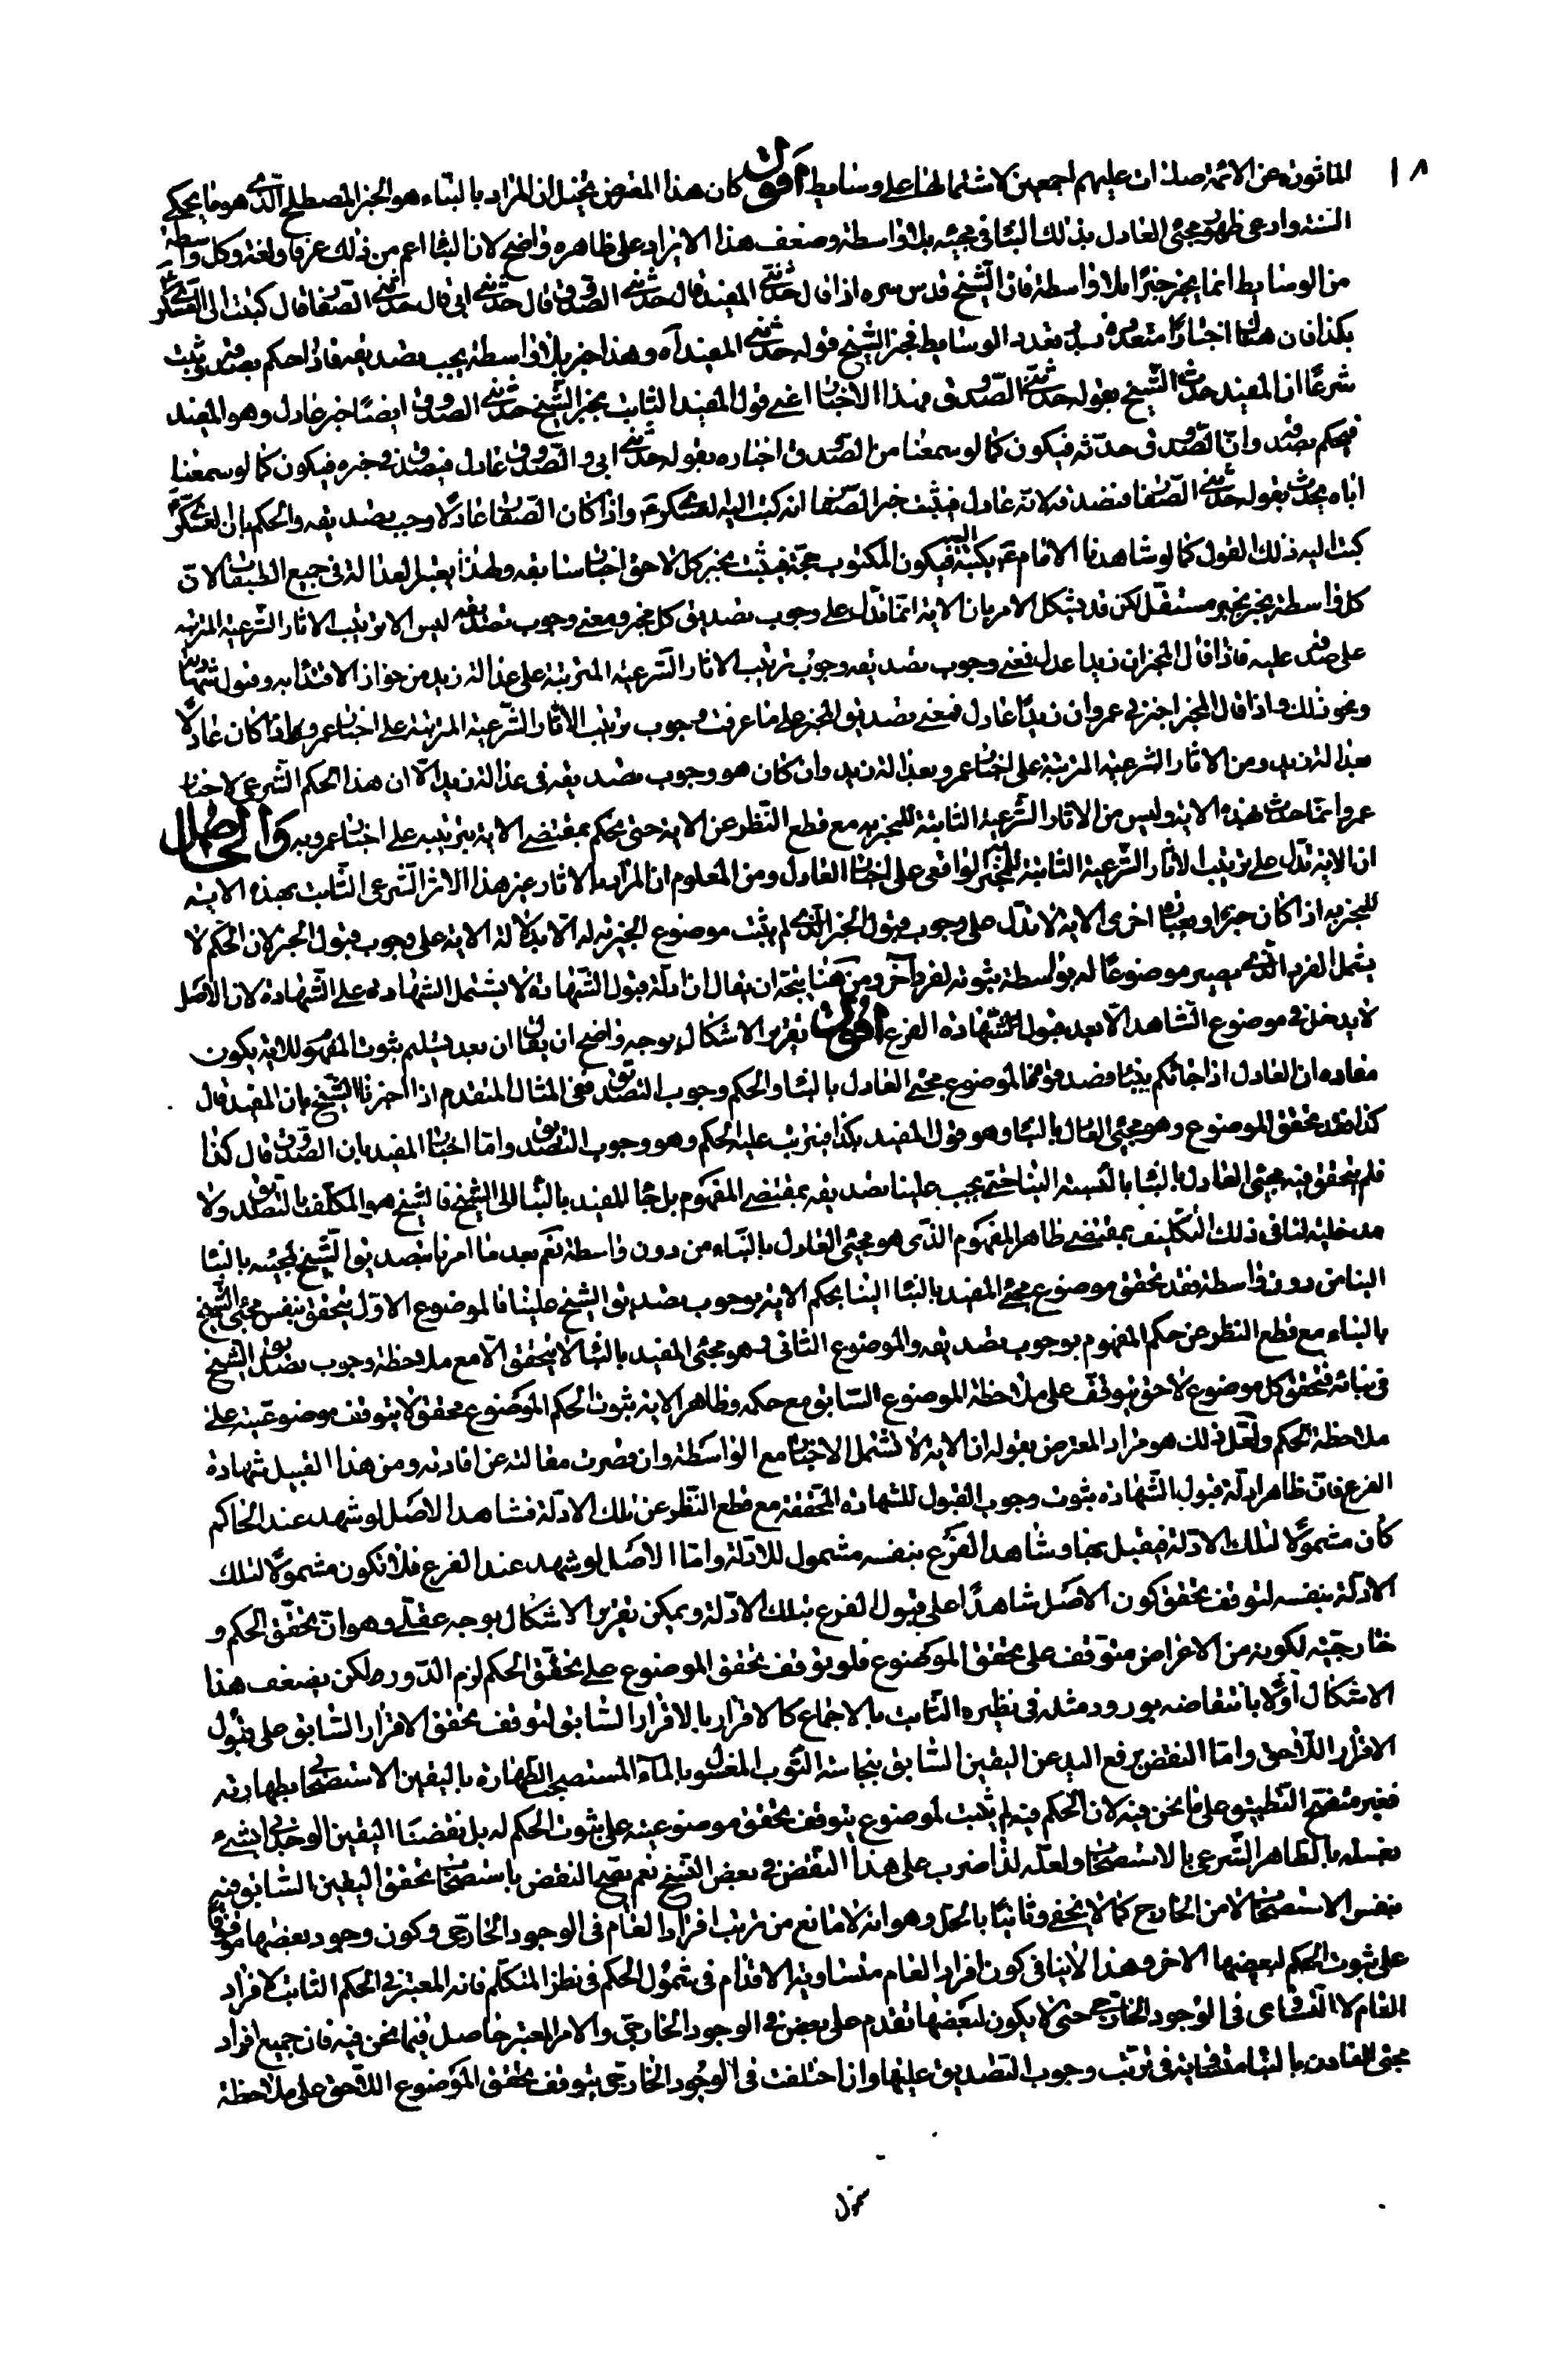 ١٨
المأثورة عن الائمة صلوات عليهم اجمعين لاشتمالها على وسايط اقول كان هذا المعترض تخيل ان المراد بالنباء هو الخبر المصطلح الذى هو ما يحكى
السنة وادعى ظهور مجئى العادل بذلك النبا فى مجيئه بلا واسطة وضعف هذا الايراد على ظاهره واضح لان النبا اعم من ذلك عرفا ولغة وكل واسطة
من الوسايط انما يخبر خبرا بلا واسطة فان الشيخ قدس سره اذا قال حدثنى المفيد قال حدثنى الصدوق قال حدثنى ابى قال حدثنى الصفار قال كتبت الى العسكرى
بكذا فان هناك اخبارا متعددة بتعدد الوسايط فخبر الشيخ قوله حدثنى المفيد آه وهذا خبر بلا واسطة يجب تصديقه فاذا حكم بصدقه وثبت
شرعا ان المفيد حدث الشيخ بقوله حدثنى الصدوق فهذا الاخبار اعنى قول المفيد الثابت بخبر الشيخ حدثنى الصدوق ايضا خبر عادل وهو المفيد
فيحكم بصدقه وان الصدوق حدثه فيكون كما لو سمعنا من الصدوق اخباره بقوله حدثنى ابى والصدوق عادل فيصدق فى خبره فيكون كما لو سمعنا
اباه يحدث بقوله حدثنى الصفار فنصدقه لانه عادل فيثبت خبر الصفار انه كتب اليه العسكرى ع واذا كان الصفار عادلا وجب تصديقه والحكم بان العسكرى
كتب اليه ذلك القول كما لو شاهدنا الامام ع يكتبه اليه فيكون المكتوب حجة فيثبت بخبر كل لاحق اخبار سابقه ولهذا يعتبر العدالة فى جميع الطبقات لان
كل واسطة يخبر بخبر مستقل لكن قد يشكل الامر بان الاية انما تدل على وجوب تصديق كل مخبر ومعنى وجوب تصديقه ليس الا ترتيب الاثار الشرعية المترتبة
على صدقه عليه فاذا قال المخبر ان زيدا عدل فمعنى وجوب تصديقه وجوب ترتيب الاثار الشرعية المترتبة على عدالة زيد من جواز الاقتداء به وقبول شهادته
ونحو ذلك واذا قال المخبر اخبرنى عمرو ان زيدا عادل فمعنى تصديق المخبر على ما عرفت وجوب ترتيب الاثار الشرعية المترتبة على اخبار عمرو اذا كان عادلا
بعدالة زيد ومن الاثار الشرعية المترتبة على اخبار عمرو بعدالة زيد وان كان هو وجوب تصديقه فى عدالة زيد الا ان هذا الحكم الشرعى لاخبار
عمرو انما حدث بهذه الاية وليس من الاثار الشرعية الثابتة للمخبر به مع قطع النظر عن الاية حتى يحكم بمقتضى الاية بترتيبه على اخبار عمرو به والحاصل
ان الاية تدل على ترتيب الاثار الشرعية الثابتة للمخبر به الواقعى على اخبار العادل ومن المعلوم ان المراد بالاثار غير هذا الاثر الشرعى الثابت بهذه الاية
للمخبر به اذا كان خبرا وبعبارة اخرى الاية لا تدل على وجوب قبول الخبر الذى لم يثبت موضوع الخبرية له الا بدلالة الاية على وجوب قبول الخبر لان الحكم لا
يشمل الفرد الذى يصير موضوعا له بواسطة ثبوته لفرد آخر ومن هنا يتجه ان يقال ان ادلة قبول الشهادة لا يشتمل الشهادة على الشهادة لان الاصل
لا يدخل فى موضوع الشاهد الا بعد قبول الشهادة الفرع اقول تقرير الاشكال بوجه واضح ان يقال ان بعد تسليم ثبوت المفهوم للاية يكون
مفاده ان العادل اذا جائكم بنبا فصدقوه فالموضوع مجئى العادل بالنبا والحكم وجوب التصديق ففى المثال المتقدم اذا اخبرنا الشيخ بان المفيد قال
كذا فقد تحقق الموضوع وهو مجئى العادل بالنبا وهو قول المفيد بكذا فيترتب عليه الحكم وهو وجوب التصديق واما اخبار المفيد بان الصدوق قال كذا
فلم يتحقق فيه مجئى العادل بالنبا بالنسبة الينا حتى يجب علينا تصديقه بمقتضى المفهوم بل جاء المفيد بالنبا الى الشيخ فالشيخ هو المكلف بالتصديق ولا
مدخلية لنا فى ذلك التكليف بمقتضى ظاهر المفهوم الذى هو مجئى العادل بالنباء من دون واسطة نعم بعد ما امرنا بتصديق الشيخ لمجيئه بالنبا
الينا من دون واسطة فقد تحقق موضوع مجئى المفيد بالنبا الينا بحكم الاية بوجوب تصديق الشيخ علينا فالموضوع الاول يتحقق بنفس مجئى الشيخ
بالنباء مع قطع النظر عن حكم المفهوم بوجوب تصديقه والموضوع الثانى وهو مجئى المفيد بالنبا لا يتحقق الا مع ملاحظة وجوب تصديق الشيخ
فى نبائه فتحقق كل موضوع لاحق يتوقف على ملاحظة الموضوع السابق مع حكمه وظاهر الاية ثبوت الحكم لموضوع محقق لا يتوقف موضوعيته على
ملاحظة الحكم ولعل ذلك هو مراد المعترض بقوله ان الاية لا تشتمل الاخبار مع الواسطة وان قصرت مقالته عن افادته ومن هذا القبيل شهادة
الفرع فان ظاهر ادلة قبول الشهادة ثبوت وجوب القبول للشهادة المحققة مع قطع النظر عن تلك الادلة فشاهد الاصل لو شهد عند الحاكم
كان مشمولا لتلك الادلة فيقبل بها وشاهد الفرع بنفسه مشمول للادلة واما الاصل لو شهد عند الفرع فلا تكون مشمولا لتلك
الادلة بنفسه لتوقف تحقق كون الاصل شاهدا على قبول الفرع بتلك الادلة ويمكن تقرير الاشكال بوجه عقلى وهو ان تحقق الحكم و
خارجيته لكونه من الاعراض متوقف على تحقق الموضوع فلو توقف تحقق الموضوع على تحقق الحكم لزم الدور ولكن يضعف هذا
الاشكال اولا بانتقاضه بورود مثله فى نظيره الثابت بالاجماع كالاقرار بالاقرار السابق لتوقف تحقق الاقرار السابق على قبول
الاقرار اللاحق واما النقض برفع اليد عن اليقين السابق بنجاسة الثوب المغسول بالماء المستصحب الطهارة باليقين الاستصحابى بطهارته
فغير متضح التطبيق على ما نحن فيه لان الحكم فيه لم يثبت لموضوع يتوقف تحقق موضوعيته على ثبوت الحكم له بل نقضنا اليقين الوجدانى بشىء
بغسله بالطاهر الشرعى بالاستصحاب ولعله لذا ضرب على هذا النقض فى بعض النسخ نعم يصح النقض باستصحاب تحقق اليقين السابق فيه
بنفس الاستصحاب لا من الخارج كما لا يخفى وثانيا بالحل وهو انه لا مانع من ترتب افراد العام فى الوجود الخارجى وكون وجود بعضها موقوفا
على ثبوت الحكم لبعضها الاخر وهذا لا ينافى كون افراد العام متساوية الاقدام فى شمول الحكم فى نظر المتكلم فانه المعتبر فى الحكم الثابت لافراد
العام لا التساوى فى الوجود الخارجى حتى لا يكون لبعضها تقدم على بعض فى الوجود الخارجى والامر المعتبر حاصل فيما نحن فيه فان جميع افراد
مجئى العادل بالنبا متساوية فى ترتب وجوب التصديق عليها وان اختلفت فى الوجود الخارجى بتوقف تحقق الموضوع اللاحق على ملاحظة